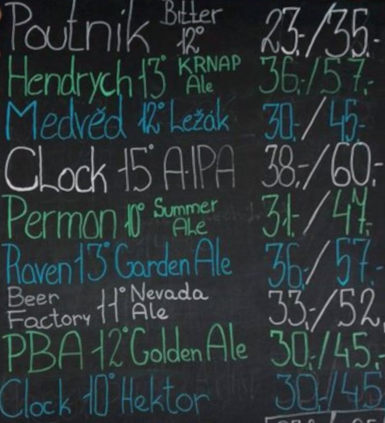 Poutník Bitter 12° 23,-/35,-
Hendrych 13° KRNAP Ale 36,-/57,-
Medvěd 12° Ležák 30,-/45,-
CLock 15° A-IPA 38,-/60,-
Permon 10° Summer Ale 31,-/47,-
Raven 13° Garden Ale 36,-/57,-
Beer Factory 11° Nevada Ale 33,-/52,
PBA 12° Golden Ale 30,-/45,-
Clock 10° Hektor 30,-/45